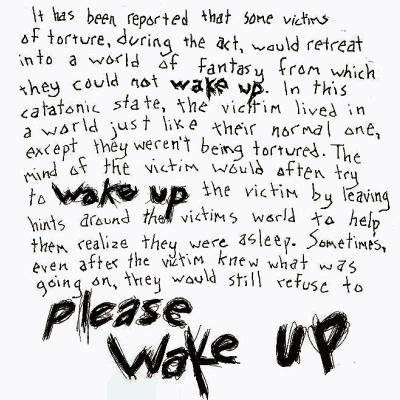 It has been reported that some victims
of torture, during the act, would retreat
into a world of fantasy from which
they could not wake up. In this
catatonic state, the victim lived in
a world just like their normal one,
except they weren't being tortured. The
mind of the victim would often try
to wake up the victim by leaving
hints around the victims world to help
them realize they were asleep. Sometimes,
even after the victim knew what was
going on, they would still refuse to
please
wake up